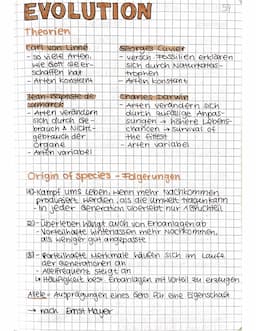 EVOLUTION
54
Theorien
Carl von Linné
- so viele Arten,
wie Gott sie er-
schaffen hat
- Arten konstant
Georges Cuvier
- versch. Fossilien erklären
sich durch Naturkatas-
trophen
- Arten konstant
Jean-Baptiste de
Lamarck
- Arten verändern
sich durch Ge-
brauch & Nicht-
gebrauch der
Organe
- Arten variabel
Charles Darwin
- Arten verändern sich
durch zufällige Anpas-
sungen → höhere Lebens-
chancen → survival of
the fittest
- Arten variabel
Origin of species - Folgerungen
(1)-Kampf ums Leben, wenn mehr Nachkommen
produziert werden als die Umwelt tragen kann
- in jeder Generation überlebt nur 1 Bruchteil
(2)- Überleben hängt auch von Erbanlagen ab
- Vorteilhafte hinterlassen mehr Nachkommen,
als weniger gut angepasste
(3)- Vorteilhafte Merkmale häufen sich im Laufe
der Generationen an
- Allelfrequenz steigt an
↳ Häufigkeit best. Erbanlagen mit Vorteil zu erzeugen
Allele = Ausprägungen eines Gens für eine Eigenschaft
→ nach Ernst Mayer